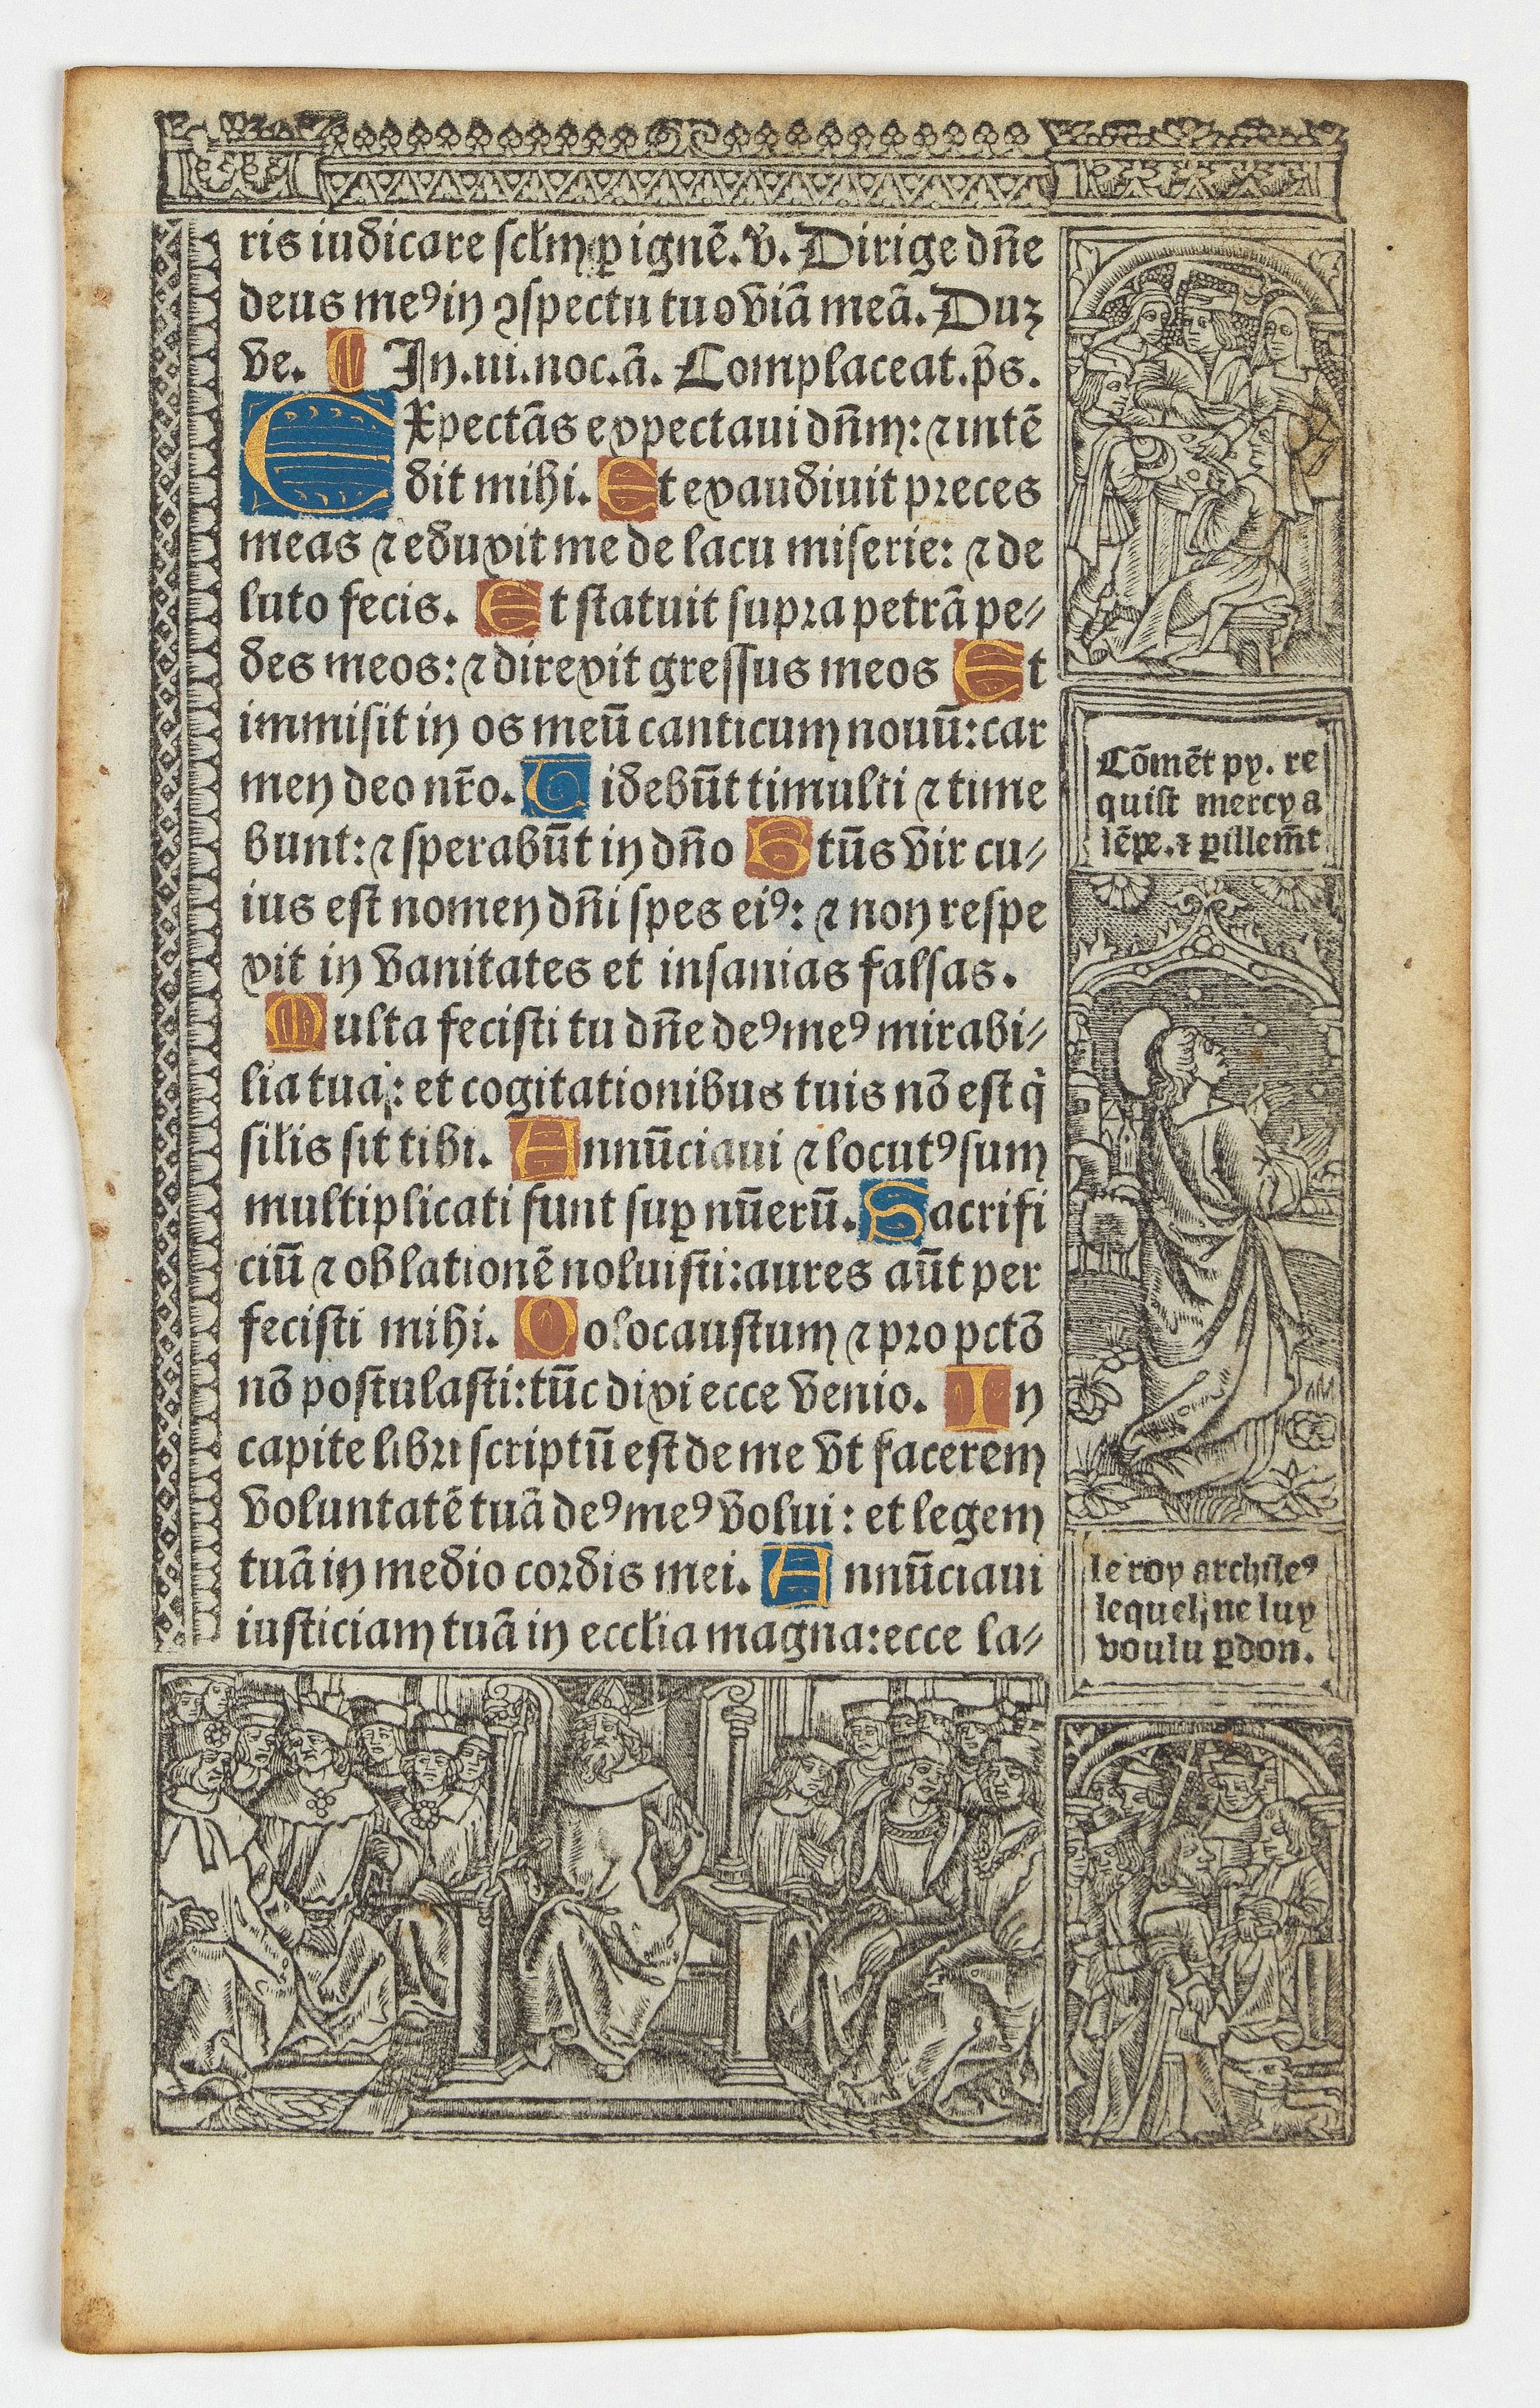 ris iudicare sclm̄ ꝑ ignē. v̄. Dirige dn̄e
deus meꝰ in ꝯspectu tuo viā meā. Duꝫ
ve. In .iii. noc. ā. Complaceat. p̄s.
EXpectās expectaui dn̄m: ⁊ intē
dit mihi. Et exaudiuit preces
meas ⁊ eduxit me de lacu miserie: ⁊ de
luto fecis. Et statuit supra petrā pe⸗
des meos: ⁊ direxit gressus meos Et
immisit in os meū canticum nouū: car
men deo nr̄o. Uidebūt timulti ⁊ time
bunt: ⁊ sperabūt in dn̄o Btūs vir cu⸗
ius est nomen dn̄i spes eiꝰ: ⁊ non respe
xit in vanitates et insanias falsas.
Multa fecisti tu dn̄e deꝰ meꝰ mirabi⸗
lia tua: et cogitationibus tuis nō est q̇
silis sit tibi. Annūciaui ⁊ locutꝰ sum
multiplicati sunt suꝑ nūerū. Sacrifi
ciū ⁊ oblationē noluisti: aures aūt per
fecisti mihi. Oolocaustum ⁊ pro pctō
nō postulasti: tūc dixi ecce venio. In
capite libri scriptū est de me vt facerem
voluntatē tuā deꝰ meꝰ volui: et legem
tuā in medio cordis mei. Annūciaui
iusticiam tuā in ecclia magna: ecce la⸗
Cōmēt py. re
quist mercy a
lēpe. ⁊ ꝑillem̄t
le roy archileꝰ
lequel ne luy
voulu ꝑdon.